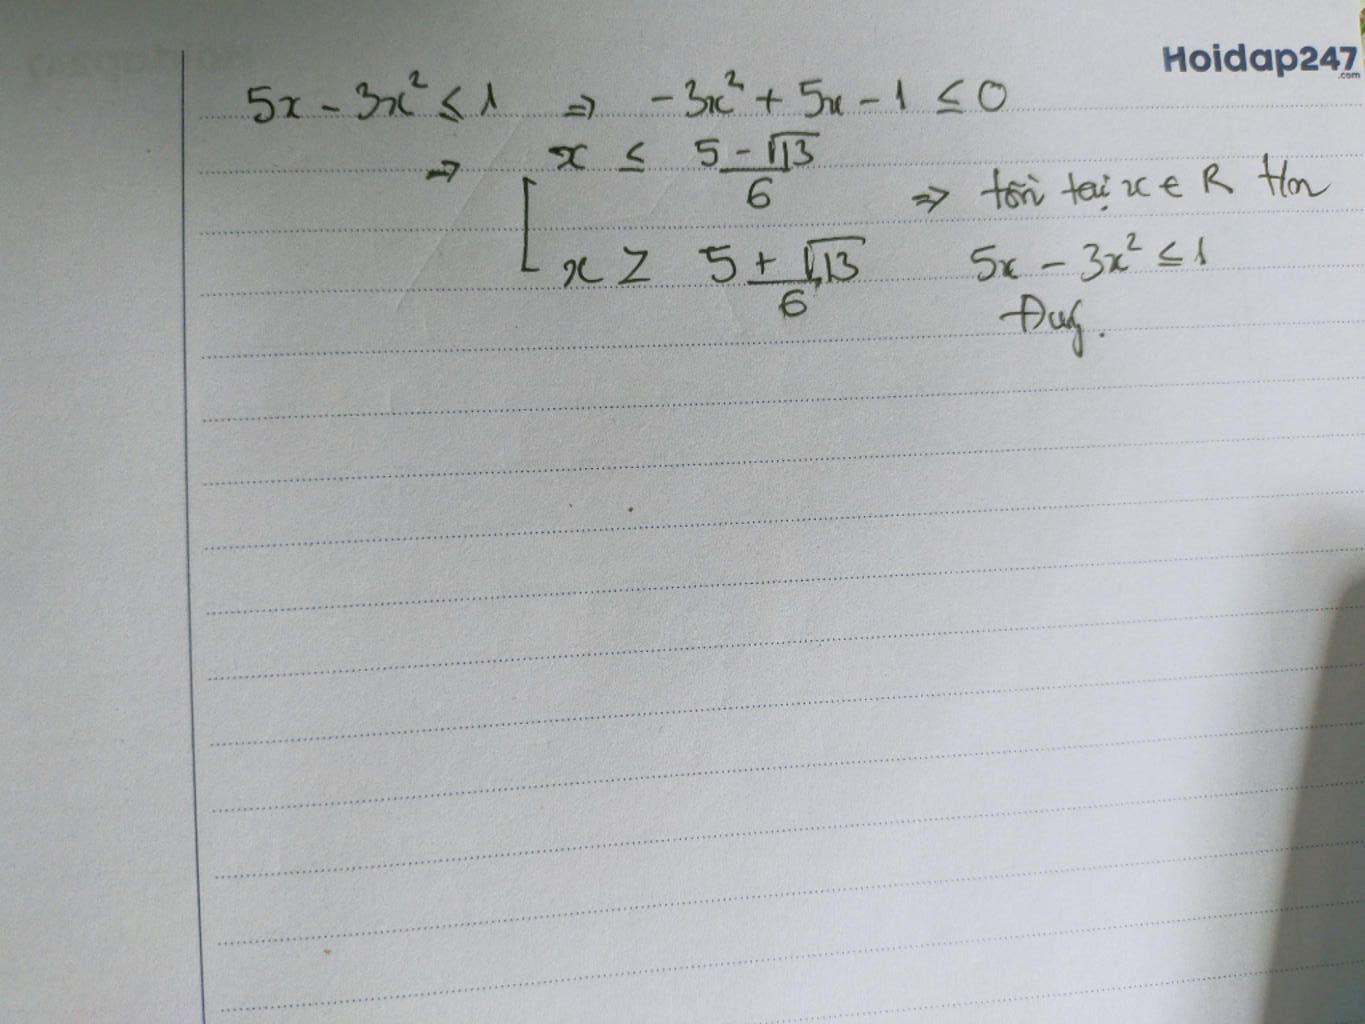 Hoidap247
.com
5x - 3x² ≤ 1 => -3x² + 5x - 1 ≤ 0
=> [ x ≤ (5 - √13)/6
x ≥ (5 + √13)/6
=> tồn tại x ∈ R
5x - 3x² ≤ 1